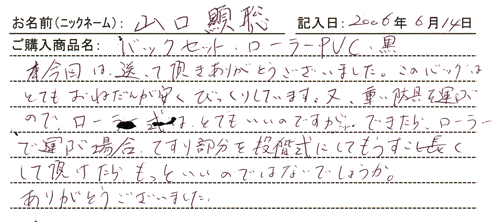 お名前(ニックネーム): 山口 顕聡 記入日: 2006年 6月14日
ご購入商品名: バックセット・ローラーPVC・黒
今回は、送って頂きありがとうございました。このバッグは
とてもおねだんが安くびっくりしています。又、重い防具を運ぶ
ので、ローラー式は、とてもいいのですが、できたら、ローラー
で運ぶ場合、てすり部分を投信式にしてもうすこし長く
して頂けたらもっといいのではないでしょうか。
ありがとうございました。